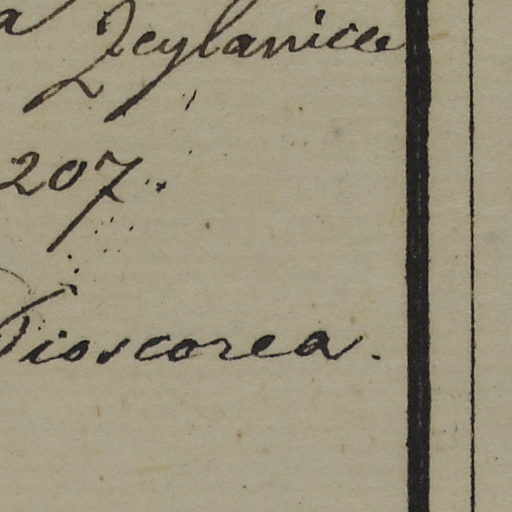 a Zeylanica
207.
Dioscorea.